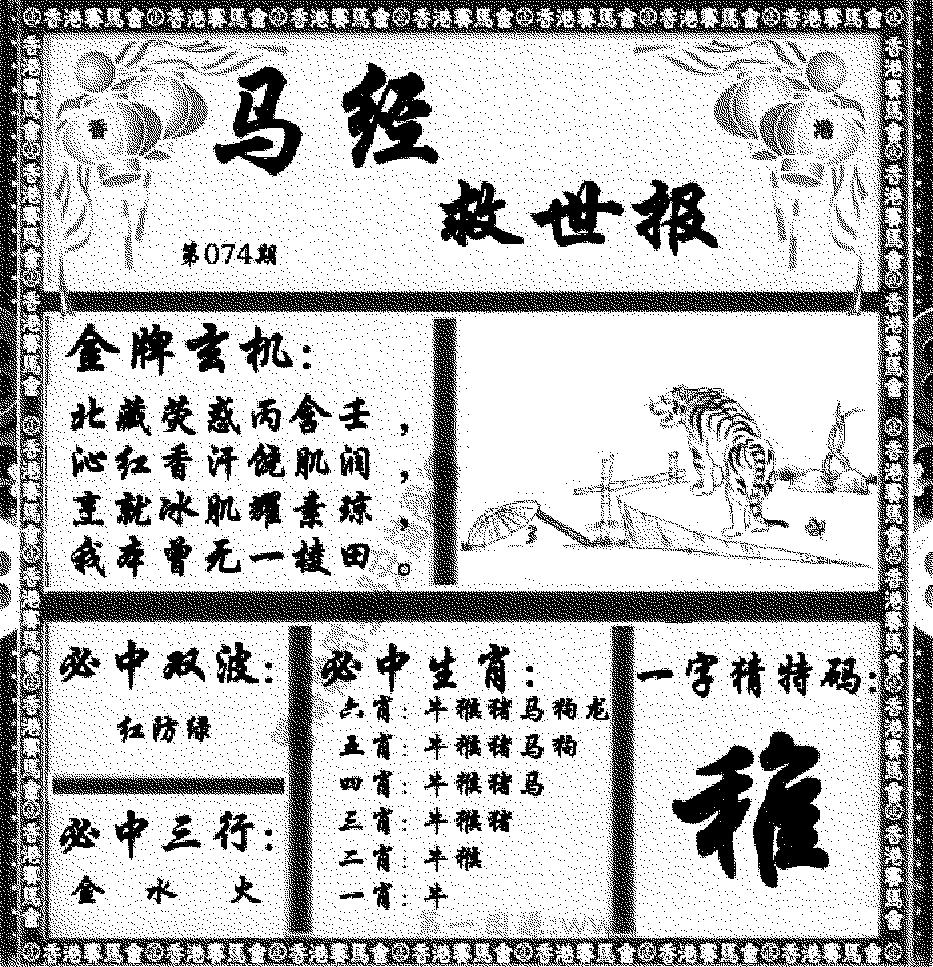 香港賽馬會 香港賽馬會 香港賽馬會 香港賽馬會 香港賽馬會 香港賽馬會 香港賽馬會
香
港
马经
救世报
第074期
金牌玄机:
北藏荧惑丙含壬,
沁红香汗饶肌润,
就冰肌耀素琼,
我本曾无一棱田。
3
必中双波:
红防绿
必中三行:
金 水 火
必中生肖:
六肖:牛猴猪马狗龙
五肖:牛猴猪马狗
四肖:牛猴猪马
三肖:牛猴猪
二肖:牛猴
一肖:牛
一字猜特码:
稚
香港賽馬會 香港賽馬會 香港賽馬會 香港賽馬會 香港賽馬會 香港賽馬會 香港賽馬會